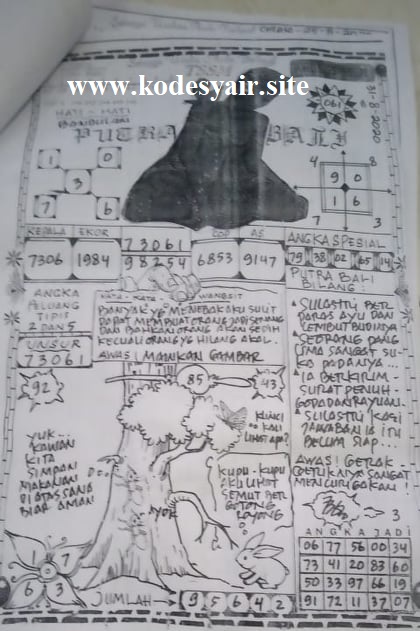 www.kodesyair.site
HATI - HATI
PUTRA BALI
061
31-8-2020
1 0
3
7 6
4 8
9 0
1 6
7 3
KEPALA EKOR
7306 1984
73061
98254
COP AS
6853 9147
ANGKA SPESIAL
79 38 02 65 14
PUTRA BALI
BILANG
ANGKA
PELUANG
TIPIS
2 DAN 5
UNSUR
73061
KATA - KATA WANGSIT
BANYAK YG MENEBAK AKU SULIT
DAPAT MEMBUAT ORANG JADI SENANG
DAN BAHKAN ORANG AKAN SEDIH
KECUALI ORANG YG HILANG AKAL.
AWAS! MAINKAN GAMBAR
SULASTRI BER
PARAS AYU DAN
LEMBUT BUDINYA
SEORANG PANG
LIMA SANGAT SU-
KA PADANYA...
IA BERKIRIM-
SURAT PENUH
GODA DAN RAYUAN.
SULASTRI KASI
JAWABAN IA ITU
BELUM SIAP...
92
85
43
KUNCI
KALI
LIHAT APA?
YUK...
KAWAN
KITA
SIMPAN
MAKANAN
DI ATAS SANA
BIAR AMAN!
KUPU - KUPU
AKU LIHAT
SEMUT BER
GOTONG
ROYONG
AYOK
AWAS! GERAK
GERIKNYA SANGAT
MENCURIGAKAN!
3
1 7
6 3
JUMLAH
9 5 6 4 2
ANGKA JADI
06 77 56 00 34
73 41 20 83 60
50 33 97 66 19
91 72 11 37 07